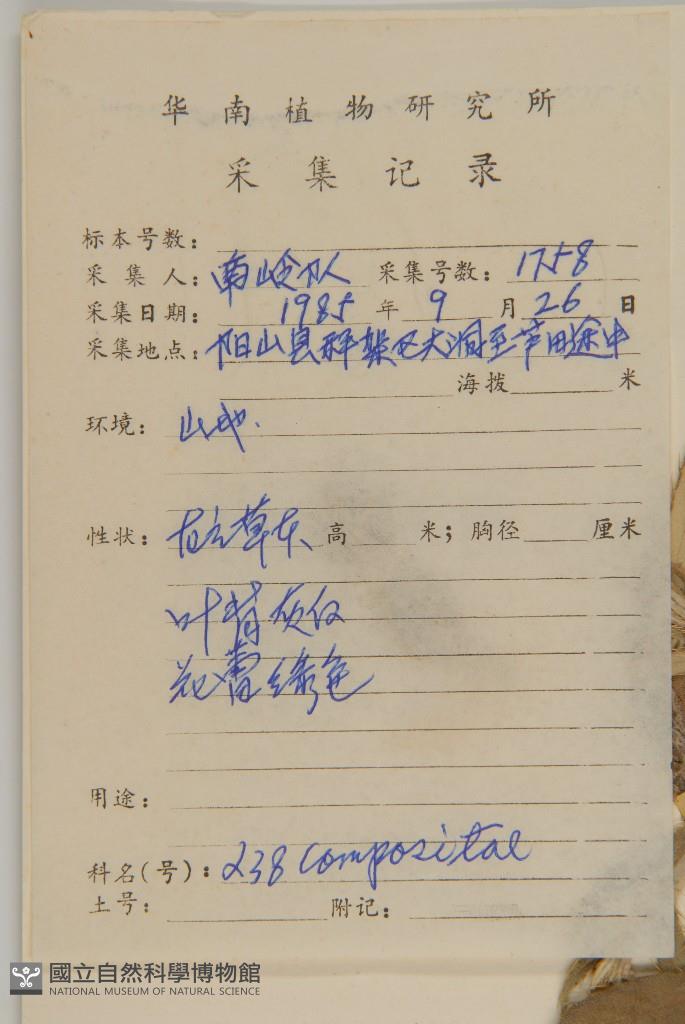 华南植物研究所
采集记录
标本号数：
采集人：南岭队 采集号数：1758
采集日期：1985年9月26日
采集地点：阳山县秤架区大洞至芦田途中
海拨 米
环境：山地.
性状：直立草本 高 米；胸径 厘米
叶背灰白
花蕾绿色
用途：
科名(号)：238 Compositae
土号： 附记：
國立自然科學博物館
NATIONAL MUSEUM OF NATURAL SCIENCE